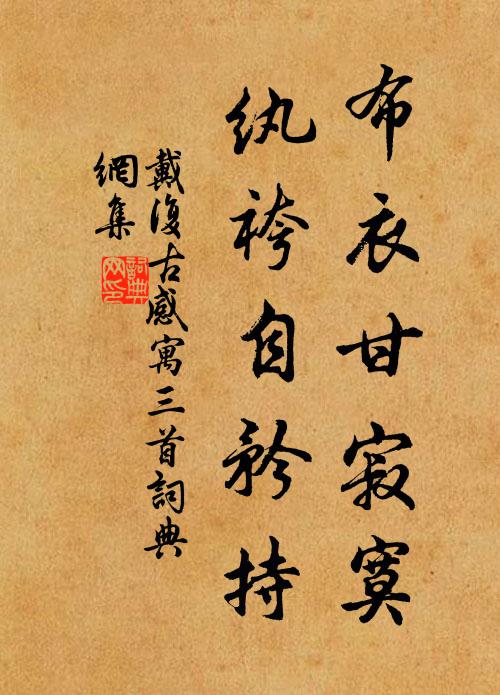 布衣甘寂寞
纨袴自矜持
戴復古感寓三首詞典
網集
詞典网印